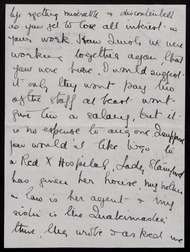 by getting miserable & discontented
as you get to lose all interest in
your work. How much we were
working together again that
you were here, I would suggest
it only they wont pay two
of the staff at least wont
give two a salary, but it
is no expense to any one I suppose
you would n't like being in
a Red X Hospital, Lady Stamford
has given her house, my mother
in law is her agent & my
sister is the Quartermaster
there. They wrote & asked me